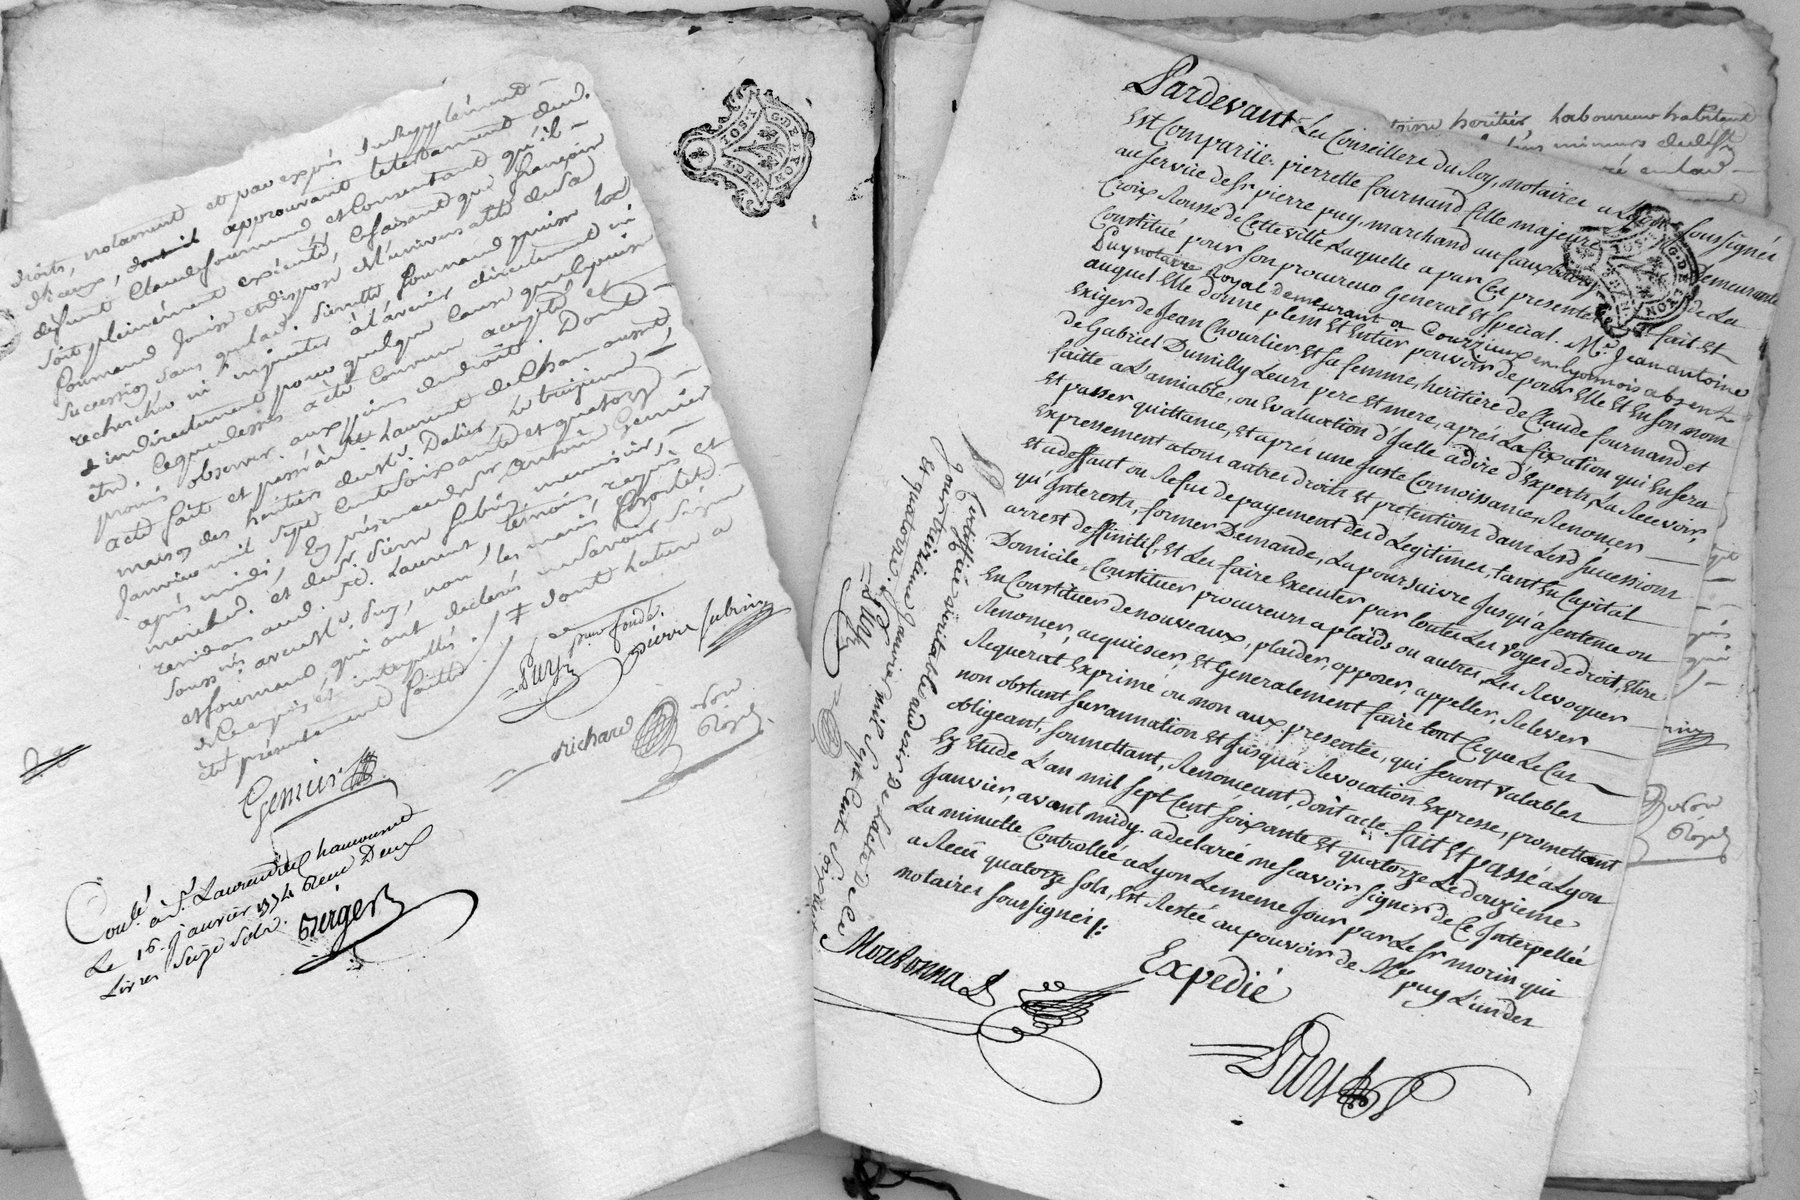 droits, notament et par exprés du supplément
d'iceux, approuvant le testament dud.
défunt Claude fournand et Consentant qu'il
soit pleinément exécuté, Ce faisant que françois
fournand Jouisse et dispose de l'universalité de sa
succession sans que lad. Pierrette fournand puisse l'en
rechercher ni inquieter à l'avenir directement ni
indirectement pour quelque Cause que ce puisse
être.
promis observer aux peines de droit. Dont
acte fait et passé à St Laurent de Chamousset,
maison des héritiers du Dalier, Le treizieme
Janvier mil sept Cent soixante et quatorze
après midi, En présence de sr Antoine Gemier
marchand, et de sr Pierre Subrin menuisier,
residans aud. St. Laurent temoins, requis et
soussignés avec led. Me Puy, non les mariés Chorlet
et fournand, qui ont declarés ne savoir sign
de Ce enquis et interpellés dont lecture a
été présentement faitte
Puy pour fondé. Pierre Subrin
Richard No.re Royal
Gemier
Conlé. à St. Laurendechamousset
Le 16 Janvier 1774 Reçu Deux
Livres Seize Sols. Berger
G. DE LYON
Pardevant Les Conseillers du Roy, notaires a Lyon soussignés
Est Comparüe pierrette fournand fille majeure demeurante
au service de sr pierre puy, marchand au fauxbourg de La
Croix Rousse de Cette ville Laquelle a par Ces presentes fait et
Constitué pour son procureur General et special. Me. Jean antoine
Puy notaire Royal demeurant a Courzieux en lyonnois absent
auquel Elle donne plein et Entier pouvoir de pour Elle et En son nom
Exiger de Jean Chourlier et sa femme, heritière de Claude fournand et
de Gabriel Dumilly Leurs pere et mere, après La fixation qui En sera
faitte a L'amiable, ou Evaluation d'Icelle a dire d'Experts, La Recevoir,
et passer quittance, et après une juste Connoissance, Renoncer
Expressement a tous autres droits et pretentions dans Lesd sucessions
et a deffaut ou Refus de payement desd Legitimes, tant En Capital
qu'Interests, former Demande, La poursuivre Jusqu'à sentence ou
arrest deffinitif, et Les faire Executer par toutes Les voyes de droit, Elire
Domicile, Constituer procureurs a plaids ou autres, Les Revoquer
En Constituer de nouveaux, plaider, opposer, appeller, Relever
Renoncer, acquiescer, et Generalement faire tout Ce que Le Cas
Requerrat Exprimé ou non aux presentes, qui seront valables
non obstant surannation et Jusqua Revocation Expresse, promettant
obligeant, soumettant, Renonceant, dont acte. fait et passé a Lyon
Ez Etude L'an mil sept Cent soixante et quatorze Le douzieme
Janvier, avant midy. a declarée ne scavoir signer de Ce Interpellée
La minutte Controllée a Lyon Le meme Jour par Le sr morin qui
a Receü quatorze sols, est Restée au pouvoir de Me puy L'un des
notaires soussignés
Expedié
Puy
Certiffié veritable au desir de L'acte de Ce
Jour treizieme Janvier mil sept Cent soixante
et quatorze.
Puy
G. DE LYON
heritier, Laboureur habitant
mineurs
Royal